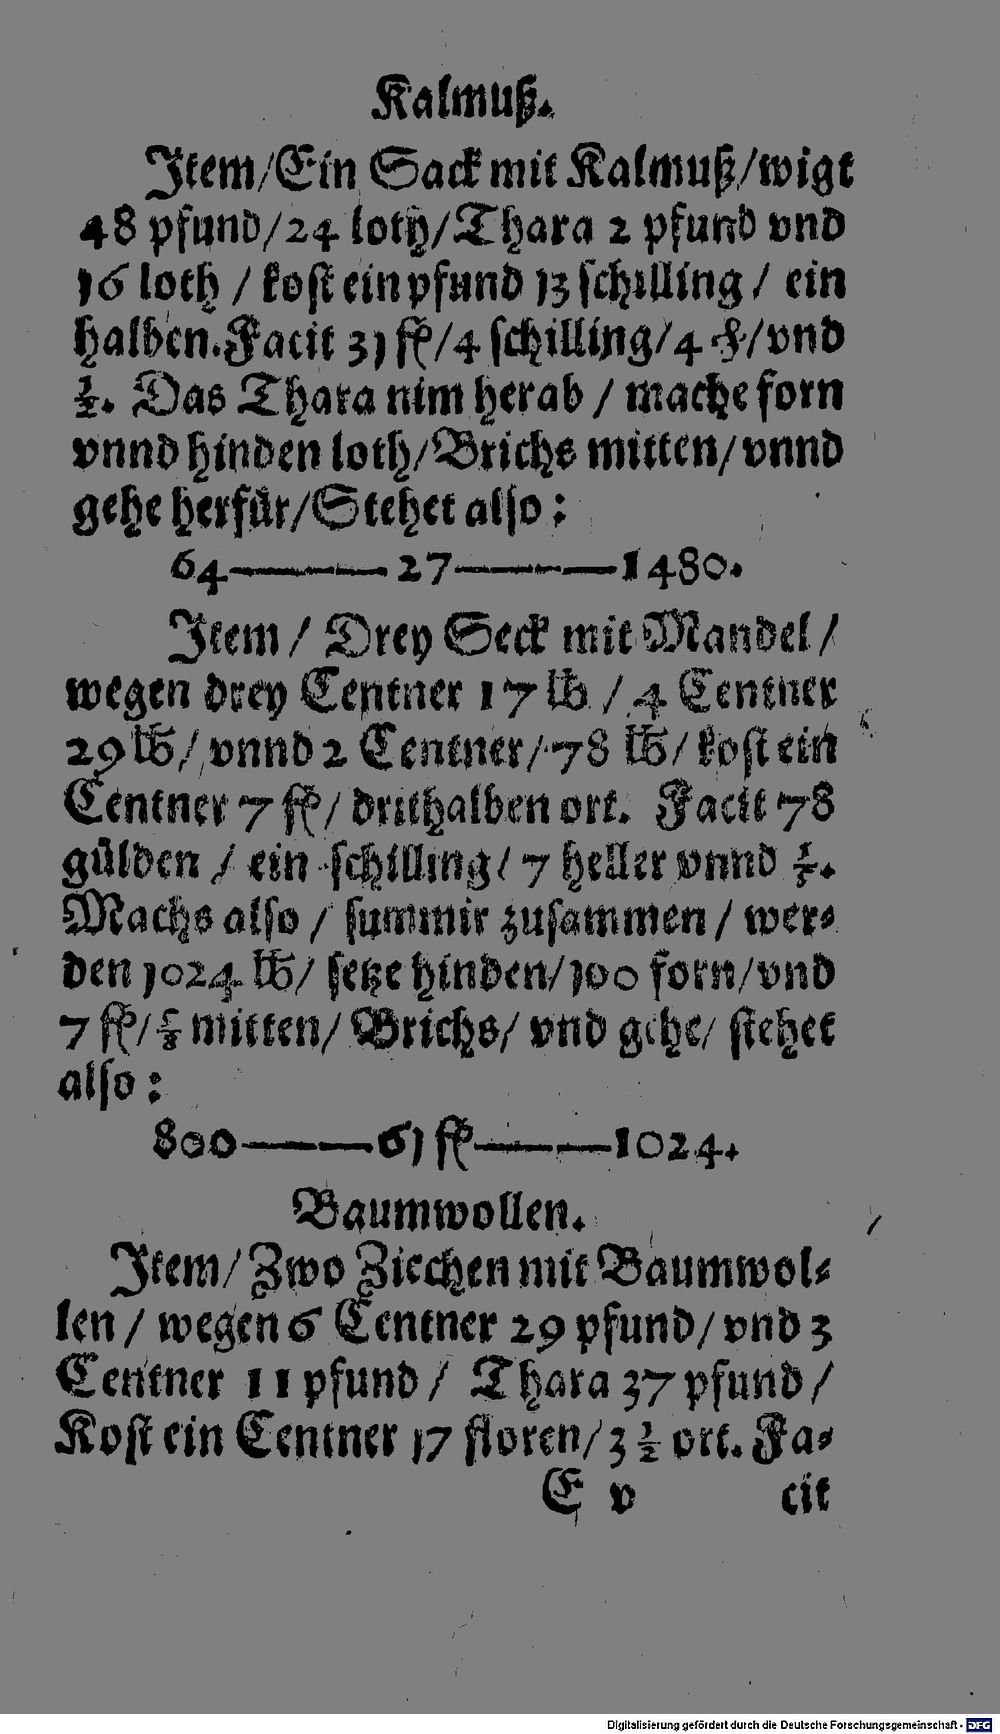 Kalmuß.
Item/Ein Sack mit Kalmuß/wigt
48 pfund/24 loth/Thara 2 pfund vnd
16 loth / kost ein pfund 13 schilling / ein
halben. Facit 31 fl/4 schilling/4 ₰/vnd
½. Das Thara nim herab / mache forn
vnnd hinden loth/Brichs mitten/vnnd
gehe herfür/Stehet also:
64——27——1480.
Item / Drey Seck mit Mandel /
wegen drey Centner 17 ℔ / 4 Centner
29 ℔/ vnnd 2 Centner/78 ℔/ kost ein
Centner 7 fl/ drithalben ort. Facit 78
gülden / ein schilling/ 7 heller vnnd ⅕.
Machs also / summir zusammen / wer⸗
den 1024 ℔/ setze hinden/100 forn/vnd
7 fl/ ⅝ mitten/ Brichs/ vnd gehe/ stehet
also:
800——61 fl——1024.
Baumwollen.
Item/ Zwo Ziechen mit Baumwol⸗
len / wegen 6 Centner 29 pfund/ vnd 3
Centner 11 pfund / Thara 37 pfund /
Kost ein Centner 17 floren/ 3 ½ ort. Fa⸗
E v cit
Digitalisierung gefördert durch die Deutsche Forschungsgemeinschaft - DFG